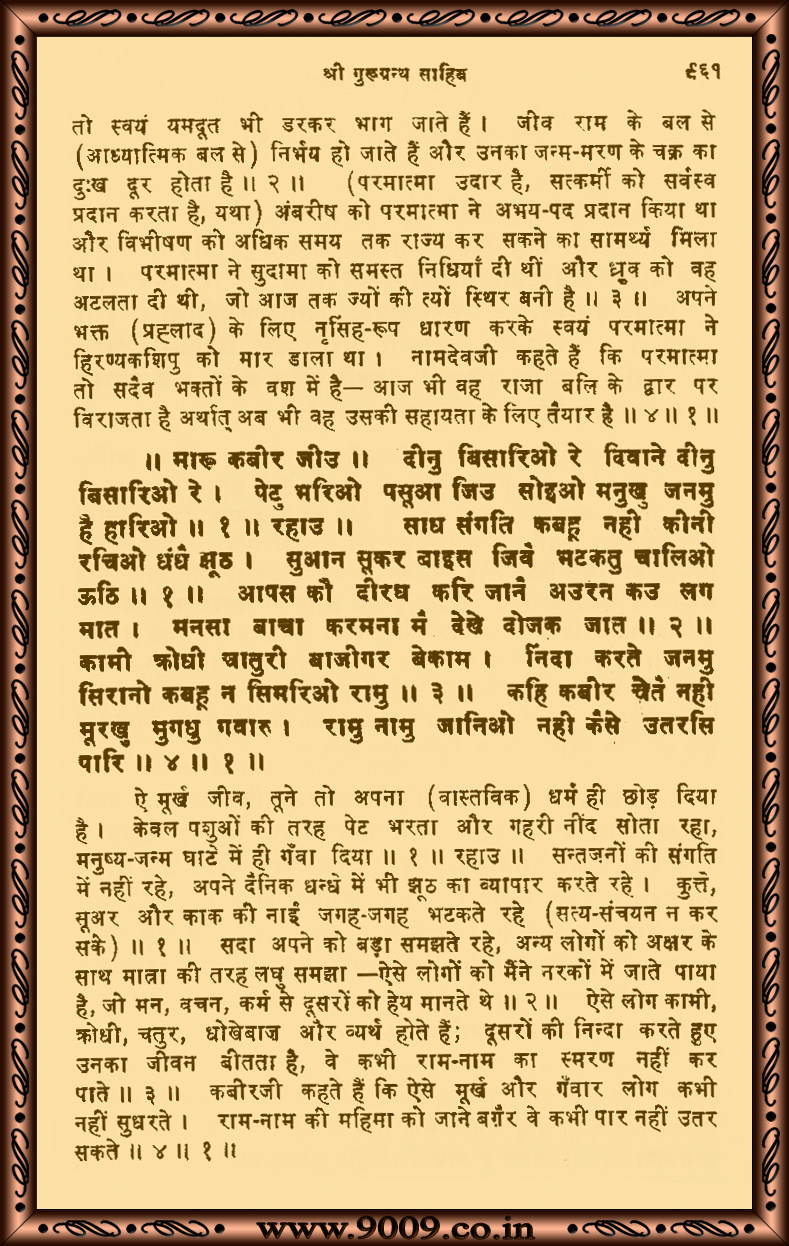 श्री गुरूग्रन्थ साहिब ९६१
तो स्वयं यमदूत भी डरकर भाग जाते हैं । जीव राम के बल से
(आध्यात्मिक बल से) निर्भय हो जाते हैं और उनका जन्म-मरण के चक्र का
दुःख दूर होता है ॥ २ ॥ (परमात्मा उदार है, सत्कर्मी को सर्वस्व
प्रदान करता है, यथा) अंबरीष को परमात्मा ने अभय-पद प्रदान किया था
और विभीषण को अधिक समय तक राज्य कर सकने का सामर्थ्य मिला
था । परमात्मा ने सुदामा को समस्त निधियाँ दी थीं और ध्रुव को वह
अटलता दी थी, जो आज तक ज्यों की त्यों स्थिर बनी है ॥ ३ ॥ अपने
भक्त (प्रह्लाद) के लिए नृसिंह-रूप धारण करके स्वयं परमात्मा ने
हिरण्यकशिपु को मार डाला था । नामदेवजी कहते हैं कि परमात्मा
तो सदैव भक्तों के वश में है— आज भी वह राजा बलि के द्वार पर
विराजता है अर्थात् अब भी वह उसकी सहायता के लिए तैयार है ॥ ४ ॥ १ ॥
॥ मारू कबीर जीउ ॥ दीनु बिसारिओ रे दिवाने दीनु
बिसारिओ रे । पेटु भरिओ पसूआ जिउ सोइओ मनुखु जनमु
है हारिओ ॥ १ ॥ रहाउ ॥ साध संगति कबहू नही कीनी
रचिओ धंधै झूठ । सुआन सूकर बाइस जिवै भटकतु चालिओ
ऊठि ॥ १ ॥ आपस कौ दीरघ करि जानै अउरन कउ लग
मात । मनसा बाचा करमना मै देखे दोजक जात ॥ २ ॥
कामी क्रोधी चातुरी बाजीगर बेकाम । निंदा करते जनमु
सिरानो कबहू न सिमरिओ रामु ॥ ३ ॥ कहि कबीर चेतै नही
मूरखु मुगधु गवारु । रामु नामु जानिओ नही कैसे उतरसि
पारि ॥ ४ ॥ १ ॥
ऐ मूर्ख जीव, तूने तो अपना (वास्तविक) धर्म ही छोड़ दिया
है । केवल पशुओं की तरह पेट भरता और गहरी नींद सोता रहा,
मनुष्य-जन्म घाटे में ही गँवा दिया ॥ १ ॥ रहाउ ॥ सन्तजनों की संगति
में नहीं रहे, अपने दैनिक धन्धे में भी झूठ का व्यापार करते रहे । कुत्ते,
सूअर और काक की नाईं जगह-जगह भटकते रहे (सत्य-संचयन न कर
सके) ॥ १ ॥ सदा अपने को बड़ा समझते रहे, अन्य लोगों को अक्षर के
साथ मात्रा की तरह लघु समझा —ऐसे लोगों को मैंने नरकों में जाते पाया
है, जो मन, वचन, कर्म से दूसरों को हेय मानते थे ॥ २ ॥ ऐसे लोग कामी,
क्रोधी, चतुर, धोखेबाज़ और व्यर्थ होते हैं; दूसरों की निन्दा करते हुए
उनका जीवन बीतता है, वे कभी राम-नाम का स्मरण नहीं कर
पाते ॥ ३ ॥ कबीरजी कहते हैं कि ऐसे मूर्ख और गँवार लोग कभी
नहीं सुधरते । राम-नाम की महिमा को जाने बग़ैर वे कभी पार नहीं उतर
सकते ॥ ४ ॥ १ ॥
www.9009.co.in